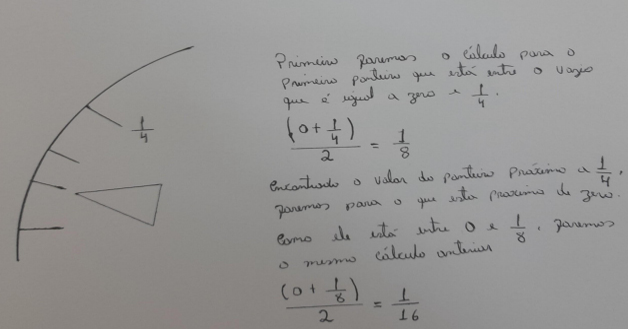 1/4
Primeiro faremos o cálculo para o
primeiro ponteiro que está entre o vazio
que é igual a zero e 1/4.
(0 + 1/4)/2 = 1/8
encontrado o valor do ponteiro próximo a 1/4,
faremos para o que esta proximo de zero.
Como ele está entre 0 e 1/8, faremos
o mesmo cálculo anterior
(0 + 1/8)/2 = 1/16